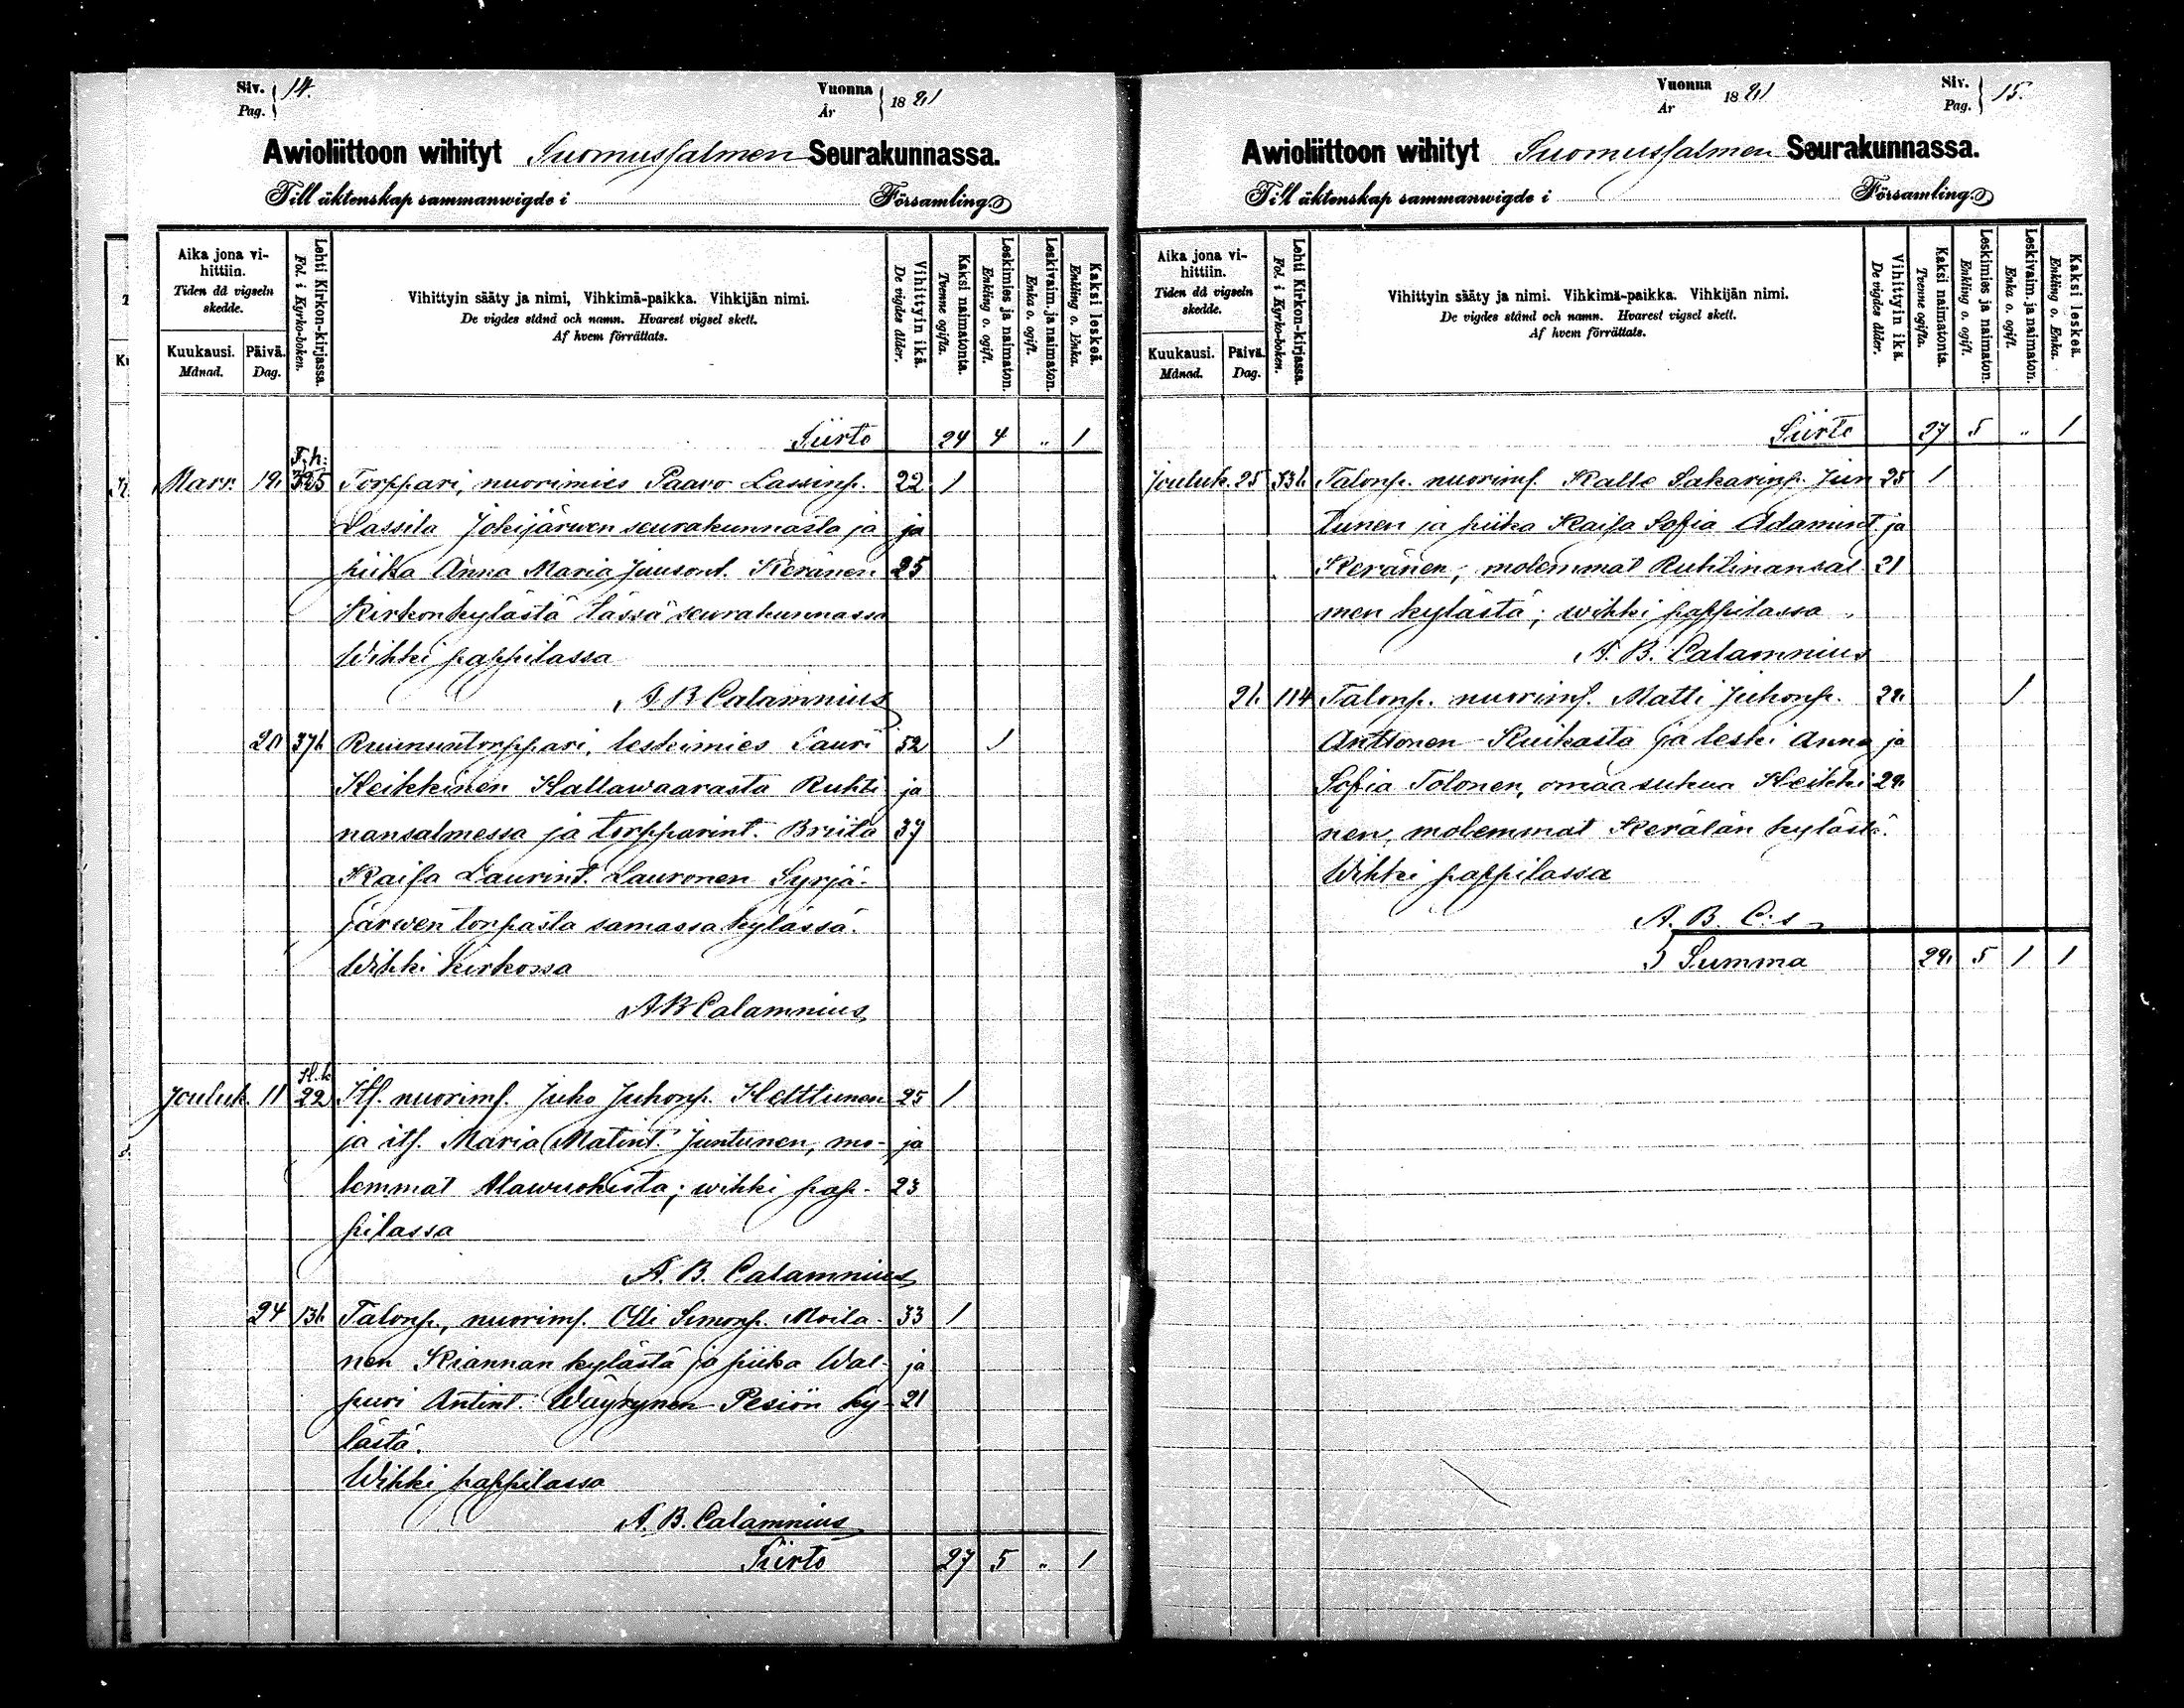 Siv. Pag. 14.
Vuonna År 1891
Awioliittoon wihityt Suomussalmen Seurakunnassa.
Till äktenskap sammanwigde i Församling.
Aika jona vihittiin. Tiden då vigseln skedde.
Kuukausi. Månad.
Päivä. Dag.
Lehti Kirkon-kirjassa. Fol. i Kyrko-boken.
Vihittyin sääty ja nimi, Vihkimä-paikka. Vihkijän nimi.
De vigdes stånd och namn. Hvarest vigsel skett.
Af hvem förrättats.
Vihittyin ikä. De vigdes ålder.
Kaksi naimatonta. Tvenne ogifta.
Leskimies ja naimaton. Enkling o. ogift.
Leskivaim. ja naimaton. Enka o. ogift.
Kaksi leskeä. Enkling o. Enka.
Siirto 24 4 „ 1
Marr. 19. 325 Torppari, nuorimies Paavo Lassinp. 22 1
Lassila Jokijärwen seurakunnasta ja ja
piika Anna Maria Juusont. Keränen 25
Kirkonkylästä tässä seurakunnassa
Wihki pappilassa
A B Calamnius
376. Ruununtorppari, leskimies Lauri 52 1
Heikkinen Hallawaarasta Ruhti- ja
nansalmessa ja torpparint. Briita 37
Kaisa Laurint. Lauronen Syrjä-
järwen torpasta samassa kylässä.
Wihki kirkossa
A B Calamnius
Jouluk. 11 22 Its. nuorims. Juho Juhonp. Helttunen 25 1
ja its. Maria Matint. Juntunen, mo- ja
lemmat Alawuokista; wihki pap- 23
pilassa
A. B. Calamnius
24 136. Talonp., nuorims. Olli Simonp. Moila- 33 1
nen Kiannan kylästä ja piika Wal- ja
puri Antint. Wäyrynen Pesiön ky- 21
lästä.
Wihki pappilassa
A. B. Calamnius
Siirto 27 5 „ 1
Vuonna År 1891
Siv. Pag. 15.
Awioliittoon wihityt Suomussalmen Seurakunnassa.
Till äktenskap sammanwigde i Församling.
Aika jona vihittiin. Tiden då vigseln skedde.
Kuukausi. Månad.
Päivä. Dag.
Lehti Kirkon-kirjassa. Fol. i Kyrko-boken.
Vihittyin sääty ja nimi. Vihkimä-paikka. Vihkijän nimi.
De vigdes stånd och namn. Hvarest vigsel skett.
Af hvem förrättats.
Vihittyin ikä. De vigdes ålder.
Kaksi naimatonta. Tvenne ogifta.
Leskimies ja naimaton. Enkling o. ogift.
Leskivaim. ja naimaton. Enka o. ogift.
Kaksi leskeä. Enkling o. Enka.
Siirto 27 5 „ 1
Jouluk. 25 Talonp. nuorims. Kalle Sakarinp. Jun 25 1
tunen ja piika Kaisa Sofia Adamint ja
Keränen, molemmat Ruhtinansal- 21
men kylästä; wihki pappilassa
A. B. Calamnius
26. 114 Talonp. nuorims. Matti Juhonp. 29. 1
Anttonen Kuikasta ja leski Anna ja
Sofia Tolonen, omaa sukua Heikki- 29.
nen, molemmat Kerälän kylästä.
Wihki pappilassa
A. B. C:s
Summa 29. 5 1 1